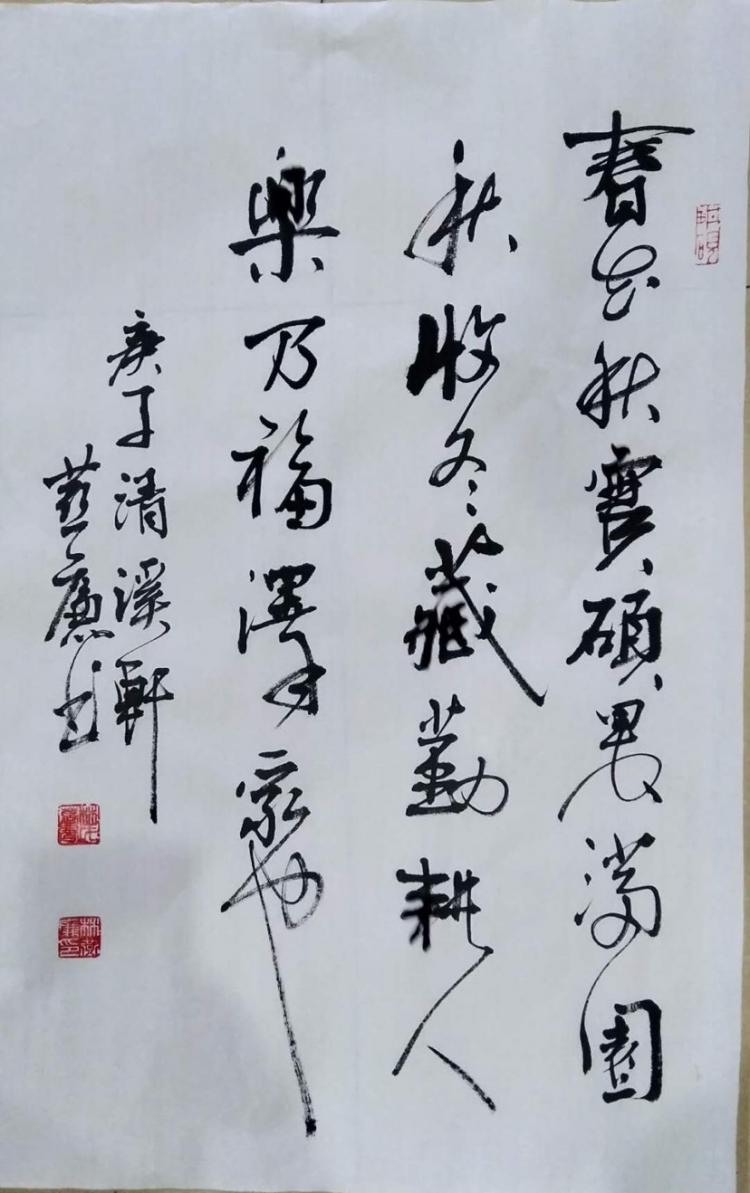 春花秋實碩果滿園
秋收冬藏勤耕人
樂乃福澤家也
庚子清溪軒
燕廉書